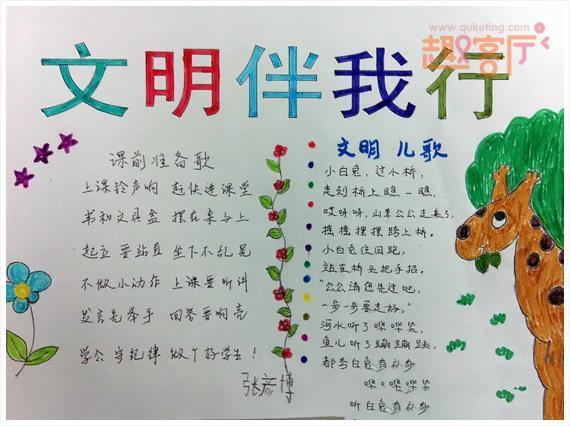 www.quketing.com
趣客厅
文明伴我行
课前准备歌
上课铃声响 赶快进课堂
书和文具盒 摆在桌与上
起立要站直 坐下不乱晃
不做小动作 上课要听讲
发言先举手 回答要响亮
学会守纪律 做个好学生！
张彦博
文明 儿歌
小白兔，过小桥，
走到桥上瞧一瞧，
哎呀呀，山羊公公走来了，
摇摇摆摆跨上桥。
小白兔往回跑，
站在桥头把手招，
“公公请您先过吧，
一步一步要走好。”
河水听了哗哗笑，
鱼儿听了蹦蹦跳，
都夸白兔有礼貌
哗哗哗哗笑
听白兔有礼貌